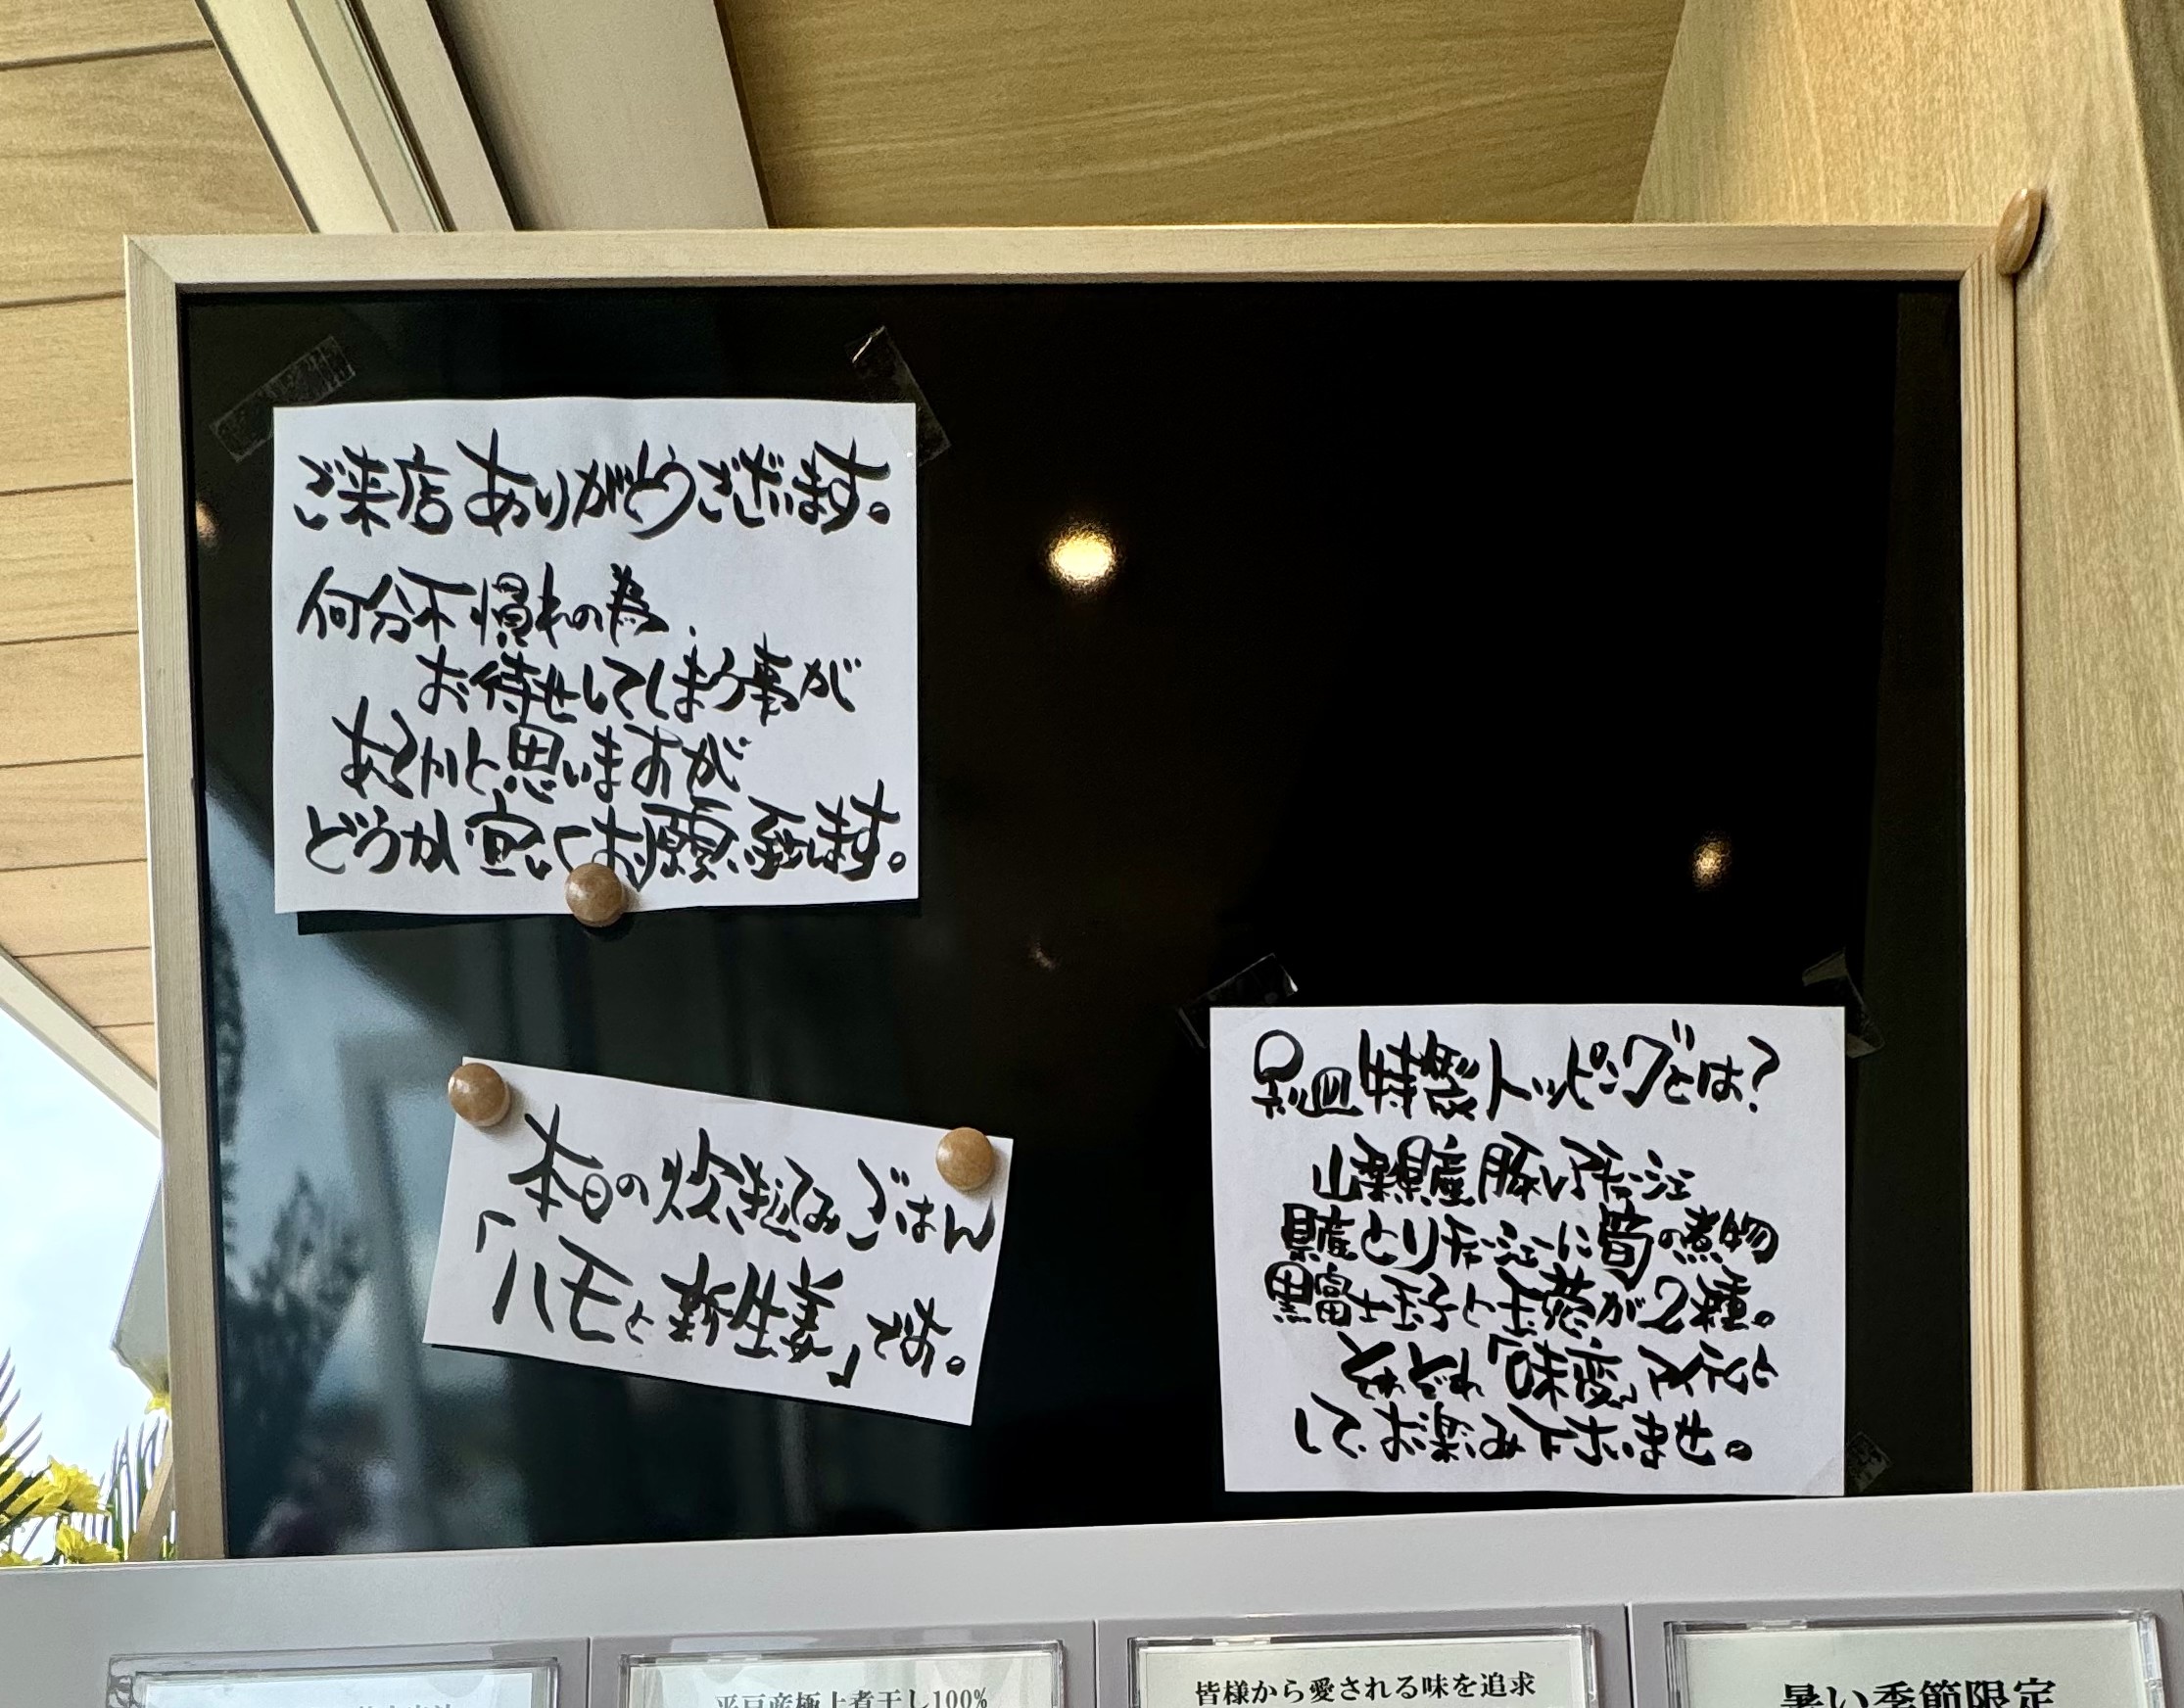 ご来店ありがとうございます。
何分不慣れの為、
お待せしてしまう事が
あるかと思いますが
どうか宜しくお願い致します。
本日の炊き込みごはん
「ハモと新生姜」です。
特製トッピングとは?
山梨県産豚レアチャーシュー
県産とりチャーシューに筍の煮物
黒富士玉子と玉葱が2種。
それぞれ「味変」スパイスと
して、お楽しみ下さいませ。
平戸産極上煮干し100%
皆様から愛される味を追求
暑い季節限定